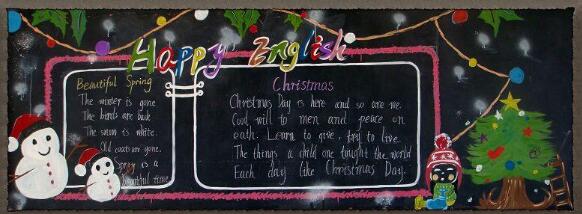 Happy English
Beautiful Spring
The winter is gone
The birds are back
The snow is white.
Old coats are gone.
Spring is a
beautiful time
Christmas
Christmas Day is here and so are we.
Good will to men and peace on
eath. Learn to give, try to live
The things a child one tought the world
Each day like Christmas Day.